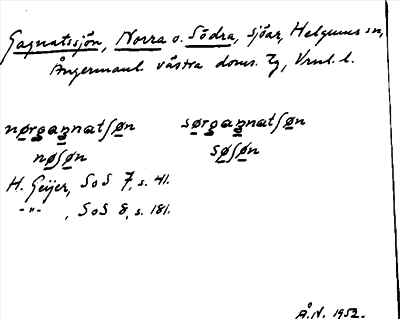 Gagnatssjön, Norra o. Södra, sjöar, Helgums sn,
Ångermanl. västra doms. tg, Vnrl. l.
nørgagnatʃøn sørgagnatʃøn
nøʃøn søʃøn
H. Geijer, SoS 7, s. 41.
-"- , SoS 8, s. 181.
Å.N. 1952.